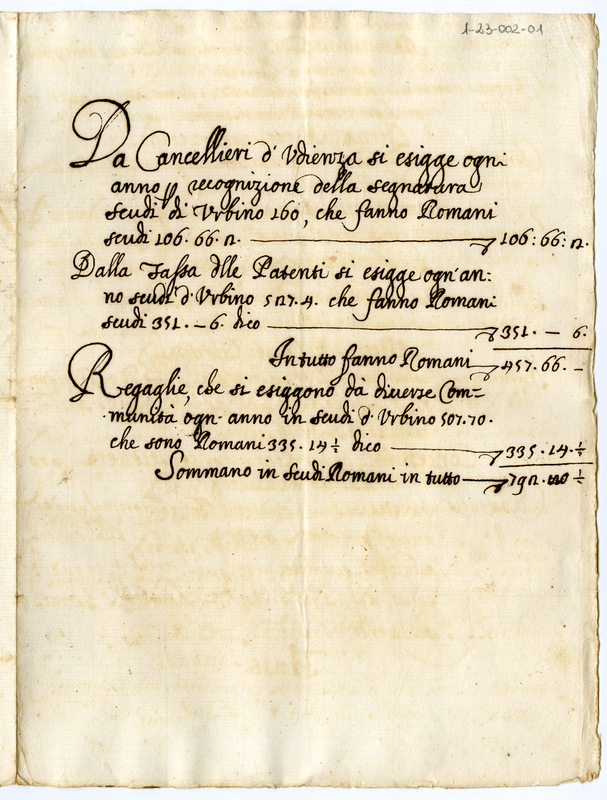 1-23-002-01
Da Cancellieri d'Vdienza si esigge ogni
anno p recognizione della segnatura
scudi di Vrbino 160, che fanno Romani
scudi 106. 66. 2. 106: 66: 2.
Dalla Tassa dlle Patenti si esigge ogn'an:
no scudi d'Vrbino 527. 4. che fanno Romani
scudi 351. – 6. dico 351. — 6.
In tutto fanno Romani 457. 66. –
Regaglie, che si esiggono dà diverse Com=
munità ogn' anno in scudi d'Vrbino 507. 70.
che sono Romani 335. 14 ½ dico 335. 14. ½
Sommano in scudi Romani in tutto 792. 80 ½